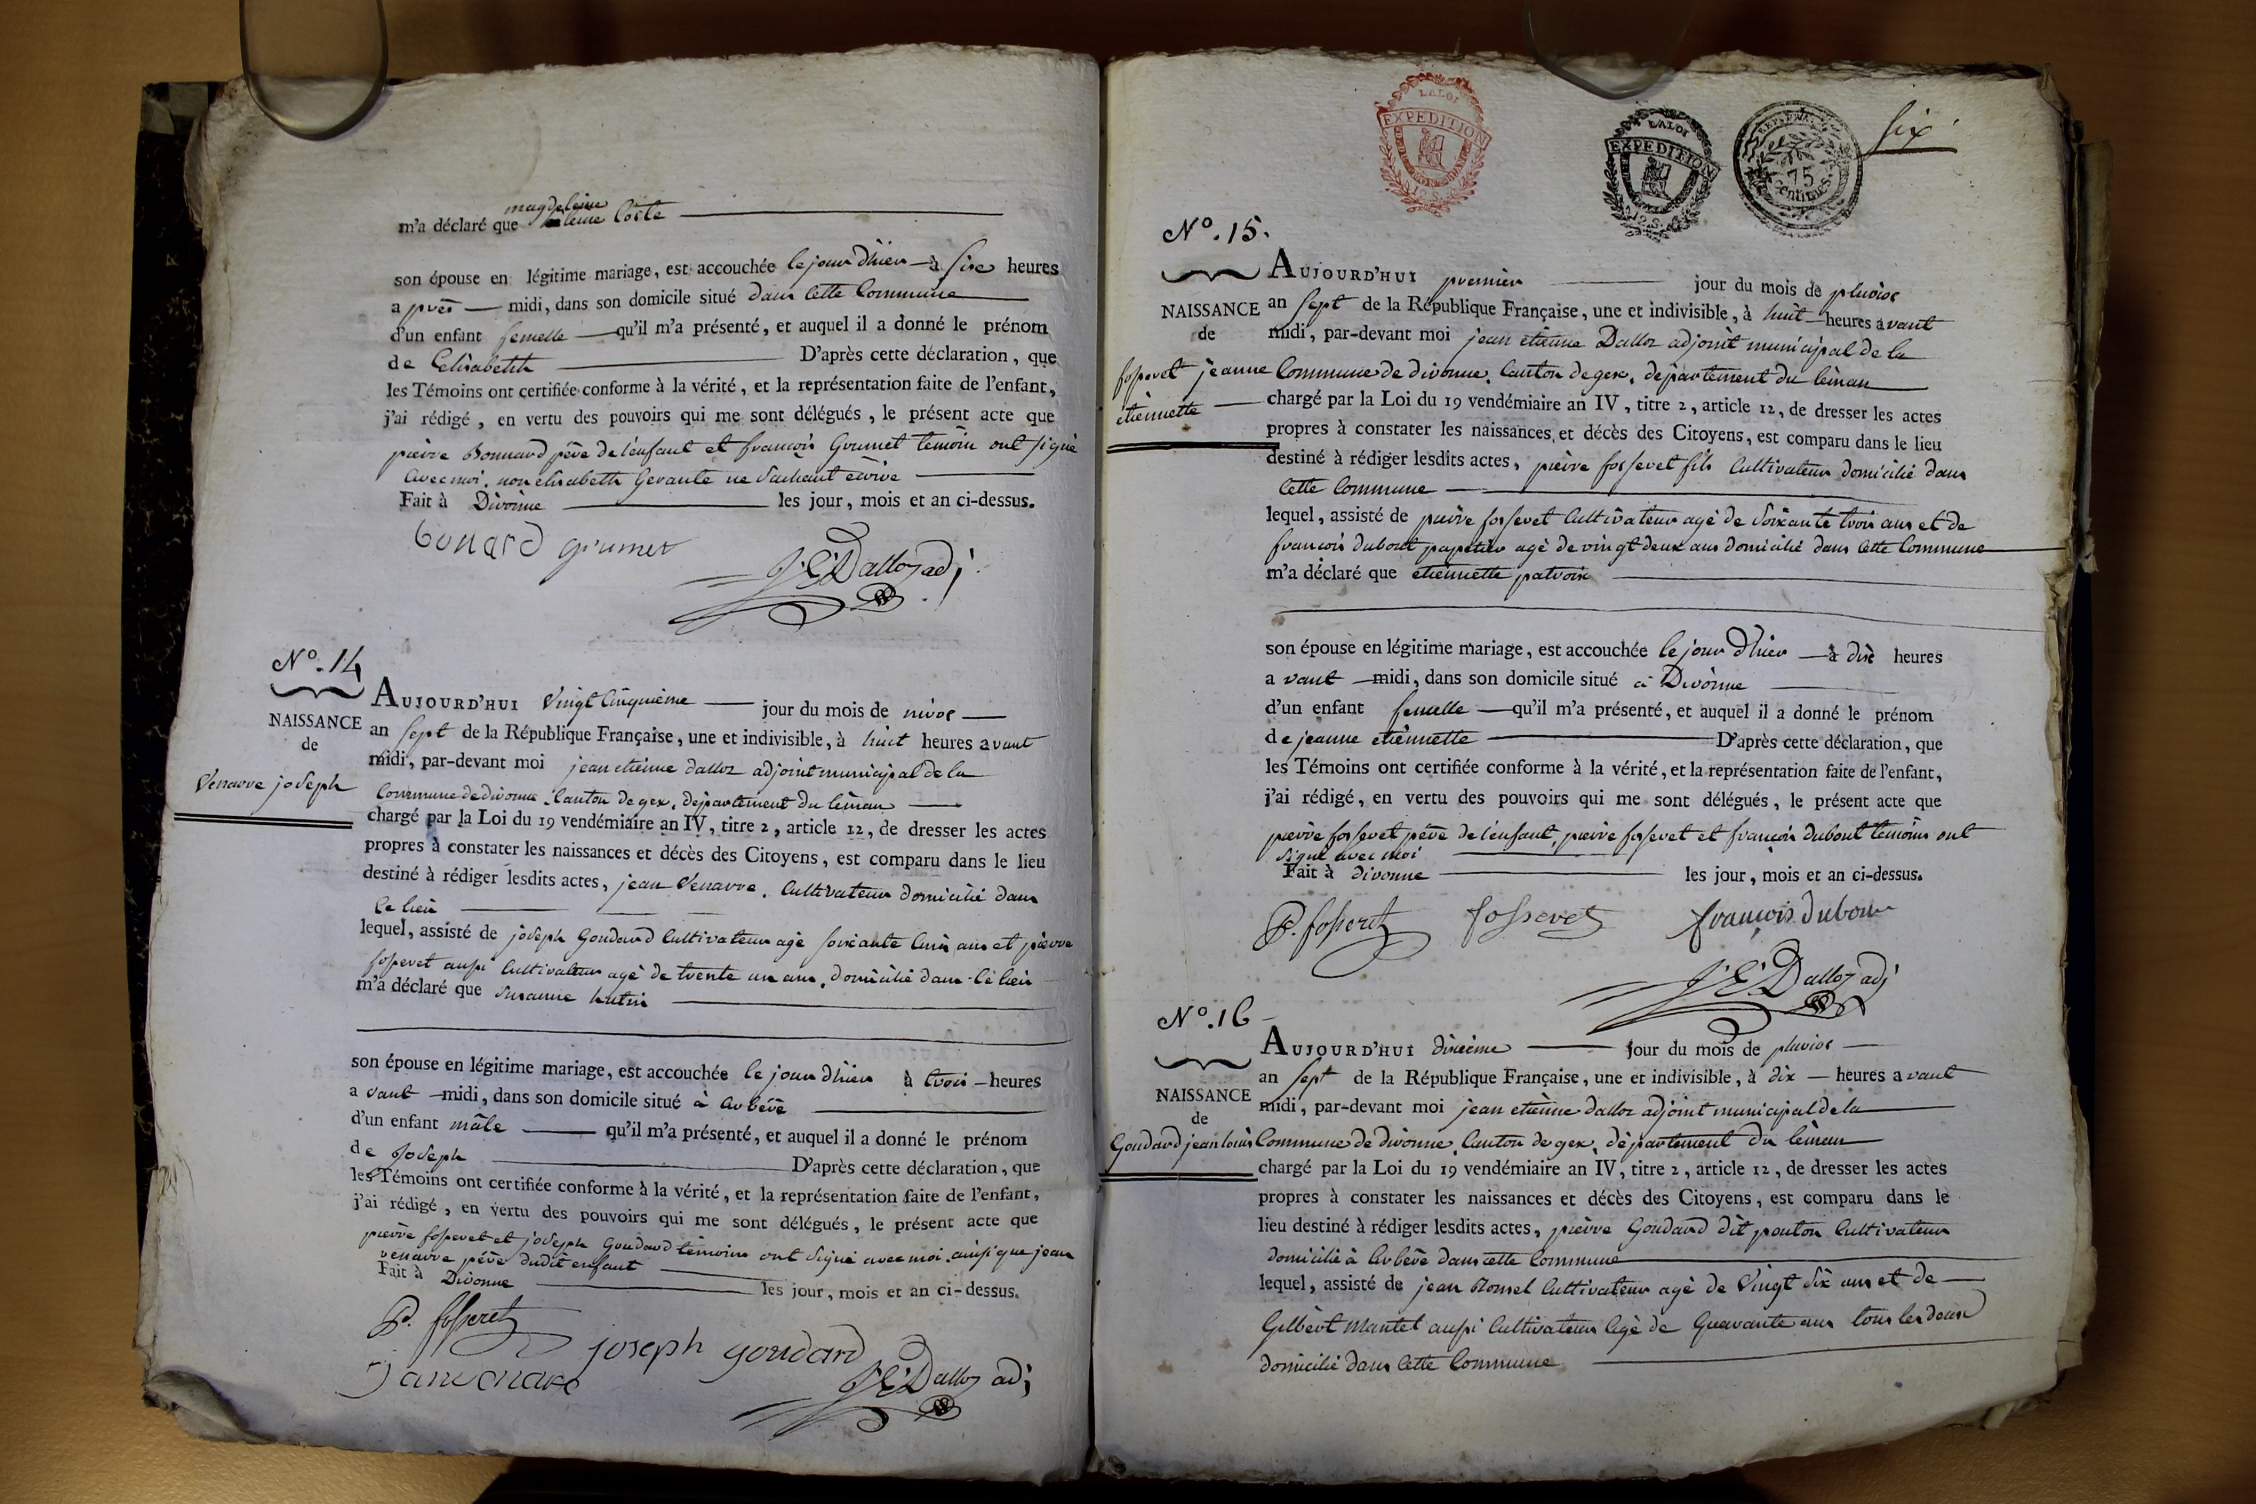 magdeleine
m'a déclaré que Coste
son épouse en légitime mariage, est accouchée le jour d'hier à six heures
a près midi, dans son domicile situé dans cette Commune
d'un enfant femelle qu'il m'a présenté, et auquel il a donné le prénom
de Elisabeth D'après cette déclaration, que
les Témoins ont certifiée conforme à la vérité, et la représentation faite de l'enfant,
j'ai rédigé, en vertu des pouvoirs qui me sont délégués, le présent acte que
pierre Bonnard père de l'enfant et francois Grumet temoin ont signé
avec moi. non elisabeth Gerante ne Sachant ecrire
Fait à Divonne les jour, mois et an ci-dessus.
bonard grumet
J. E. Dalloz adj
N°. 14
NAISSANCE
de
Venarre joseph
AUJOURD'HUI Vingt Cinquieme jour du mois de nivos
an Sept de la République Française, une et indivisible, à huit heures avant
midi, par-devant moi jean etienne dalloz adjoint municipal de la
Commune de divonne. Canton de gex. département du léman
chargé par la Loi du 19 vendémiaire an IV, titre 2, article 12, de dresser les actes
propres à constater les naissances et décès des Citoyens, est comparu dans le lieu
destiné à rédiger lesdits actes, jean Venarre. Cultivateur domicilié dans
Ce lieu
lequel, assisté de joseph Goudard Cultivateur agé soixante ans et pierre
fosseret aussi Cultivateur agé de trente un ans. domicilié dans Ce lieu
m'a déclaré que Susanne hutin
son épouse en légitime mariage, est accouchée le jour d'hier à trois heures
a vant midi, dans son domicile situé à Arbére
d'un enfant mâle qu'il m'a présenté, et auquel il a donné le prénom
de Joseph D'après cette déclaration, que
les Témoins ont certifiée conforme à la vérité, et la représentation faite de l'enfant,
j'ai rédigé, en vertu des pouvoirs qui me sont délégués, le présent acte que
pierre fosseret et joseph Goudard témoins ont signé avec moi. ainsi que jean
venarre pére dudit enfant
Fait à Divonne les jour, mois et an ci-dessus.
P. fosseret
joseph goudard
J. E. Dalloz adj
LA LOI
EXPEDITION
LA LOI
EXPEDITION
12. S.
75
centimes
six
N°. 15.
NAISSANCE
de
fosseret jeanne
etiennette
AUJOURD'HUI premier jour du mois de pluvios
an Sept de la République Française, une et indivisible, à huit heures avant
midi, par-devant moi jean etienne Dalloz adjoint municipal de la
Commune de divonne. Canton de gex. département du léman
chargé par la Loi du 19 vendémiaire an IV, titre 2, article 12, de dresser les actes
propres à constater les naissances et décès des Citoyens, est comparu dans le lieu
destiné à rédiger lesdits actes, pierre fosseret fils Cultivateur domicilié dans
Cette Commune
lequel, assisté de pierre fosseret Cultivateur agé de Soixante trois ans et de
francois dubout papetier agé de vingt deux ans domicilié dans Cette Commune
m'a déclaré que etiennette patroix
son épouse en légitime mariage, est accouchée le jour d'hier à dix heures
a vant midi, dans son domicile situé à Divonne
d'un enfant femelle qu'il m'a présenté, et auquel il a donné le prénom
de jeanne etiennette D'après cette déclaration, que
les Témoins ont certifiée conforme à la vérité, et la représentation faite de l'enfant,
j'ai rédigé, en vertu des pouvoirs qui me sont délégués, le présent acte que
pierre fosseret pére de l'enfant, pierre fosseret et francois dubout temoins ont
signé avec moi
Fait à divonne les jour, mois et an ci-dessus.
P. fosseret fosseret françois dubou
J. E. Dalloz adj
N°. 16
NAISSANCE
de
Goudard jean louis
AUJOURD'HUI dixiéme jour du mois de pluvios
an Sept de la République Française, une et indivisible, à dix heures avant
midi, par-devant moi jean etienne dalloz adjoint municipal de la
Commune de divonne. Canton de gex. département du léman
chargé par la Loi du 19 vendémiaire an IV, titre 2, article 12, de dresser les actes
propres à constater les naissances et décès des Citoyens, est comparu dans le
lieu destiné à rédiger lesdits actes, pierre Goudard dit ponton Cultivateur
domicilié à Arbére dans cette Commune
lequel, assisté de jean Cultivateur agé de Vingt Six ans et de
Gilbert Mantel aussi Cultivateur agé de Quarante ans tous les deux
domicilié dans Cette Commune